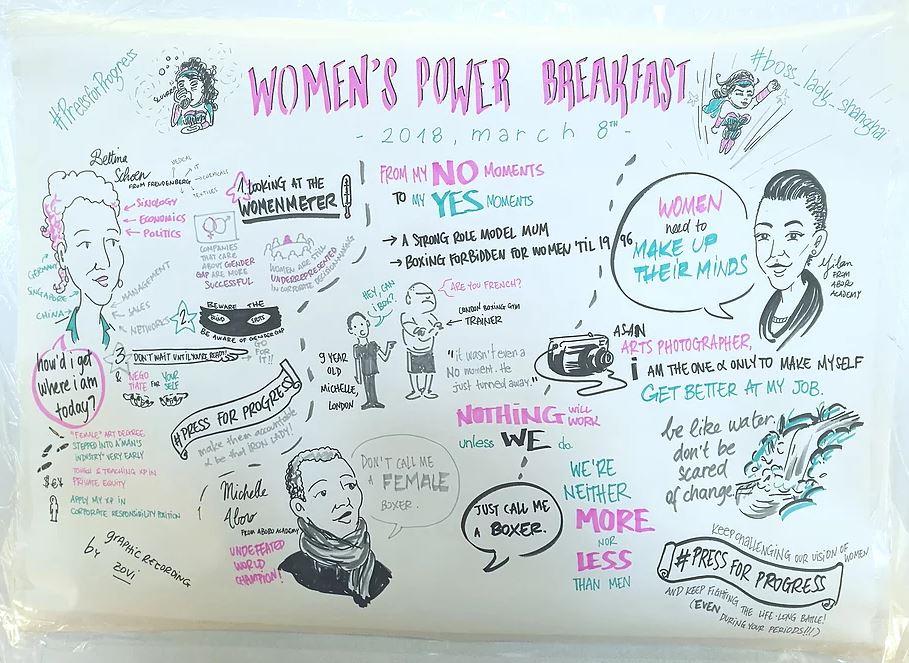 #PressforProgress
WOMEN'S POWER BREAKFAST
- 2018, march 8TH -
#boss_lady_shanghai
Bettina
Schoen
FROM FREUDENBERG
MEDICAL
IT
CHEMICALS
TEXTILES
SINOLOGY
ECONOMICS
POLITICS
GERMANY
SINGAPORE
CHINA
MANAGEMENT
SALES
NETWORKS
how'd i get
where i am
today?
"FEMALE" ART DEGREE,
STEPPED INTO A "MAN'S
INDUSTRY" VERY EARLY
TOUGH & TEACHING XP IN
PRIVATE EQUITY
APPLY MY XP IN
CORPORATE RESPONSIBILITY POSITION
by GRAPHIC RECORDING
ZOVI
1 LOOKING AT THE
WOMENMETER
COMPANIES
THAT CARE
ABOUT GENDER
GAP ARE MORE
SUCCESSFUL
WOMEN ARE STILL
UNDERREPRESENTED
IN CORPORATE DECISION MAKING
2 BEWARE THE
BLIND SPOTS
BE AWARE OF GENDER GAP
3 DON'T WAIT UNTIL YOU'RE READY!
GO
FOR
IT!!
& NEGO
TIATE FOR YOUR
SELF
#PRESS FOR PROGRESS
make them accountable
& be that IRON LADY!
FROM MY NO MOMENTS
TO MY YES MOMENTS
→ A STRONG ROLE MODEL MUM
→ BOXING FORBIDDEN FOR WOMEN 'TIL 1996
HEY, CAN
I BOX?
ARE YOU FRENCH?
LONDON BOXING GYM
TRAINER
9 YEAR
OLD
MICHELLE,
LONDON
"it wasn't even a
No moment. He
just turned away."
Michelle
Aboro
FROM ABORO ACADEMY
UNDEFEATED
WORLD
CHAMPION!
DON'T CALL ME
A FEMALE
BOXER.
JUST CALL ME
A BOXER.
NOTHING WILL
WORK
unless WE do.
WE'RE
NEITHER
MORE
NOR
LESS
THAN MEN
WOMEN
need to
MAKE UP
THEIR MINDS
FROM
ABORO
ACADEMY
AS AN
ARTS PHOTOGRAPHER,
i AM THE ONE & ONLY TO MAKE MYSELF
GET BETTER AT MY JOB.
be like water,
don't be
scared
of change
KEEP CHALLENGING OUR VISION OF WOMEN
#PRESS FOR PROGRESS
AND KEEP FIGHTING THE LIFE-LONG BATTLE!
(EVEN DURING YOUR PERIODS!!!)